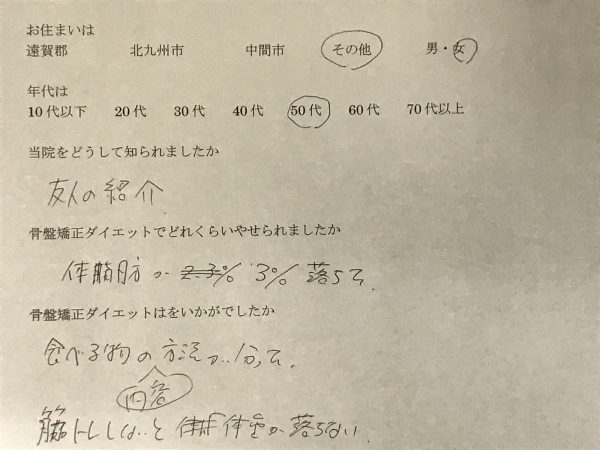 お住まいは
遠賀郡 北九州市 中間市 その他 男・女
年代は
10代以下 20代 30代 40代 50代 60代 70代以上
当院をどうして知られましたか
友人の紹介
骨盤矯正ダイエットでどれくらいやせられましたか
体脂肪が 2.3% 3% 落ちて.
骨盤矯正ダイエットはをいかがでしたか
食べる物の方法が分って.
内容
筋トレしないと 体重が落ちない.